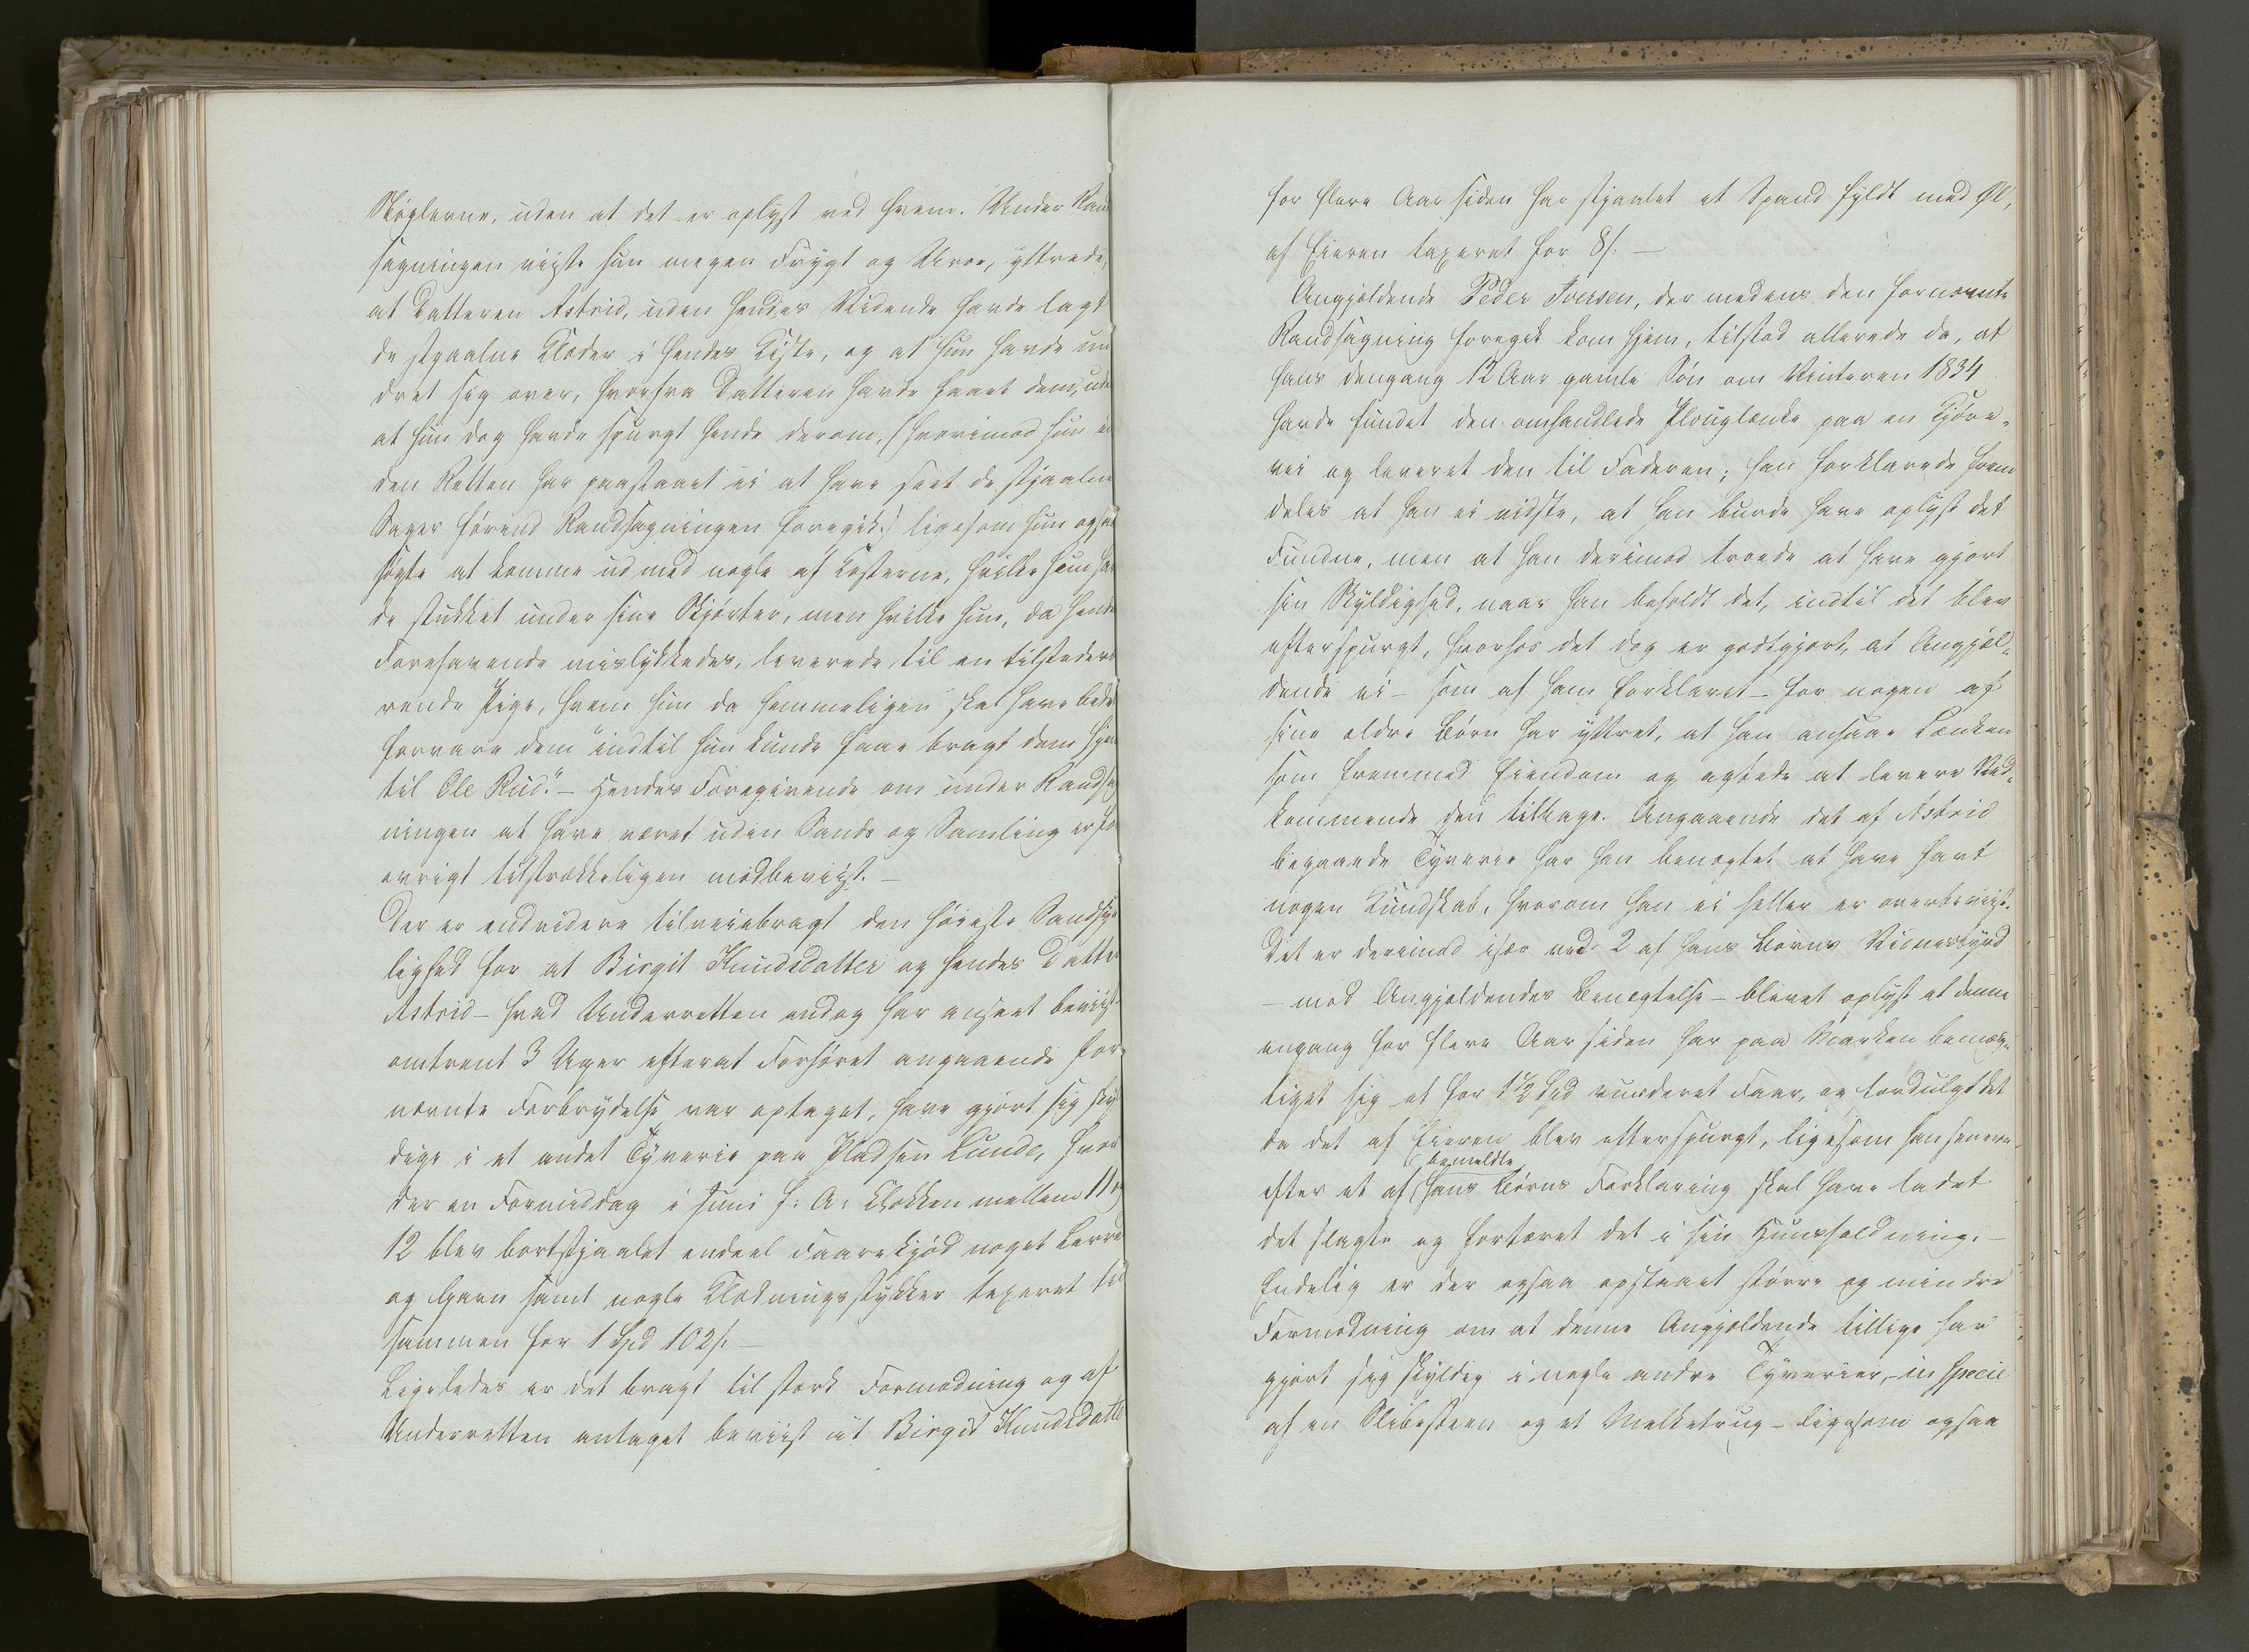 Nøglerne, uden at det er oplyst ved hvem. Under Rand
sagningen viiste hun megen Frygt og Uroe, yttrede,
at Datteren Astrid, uden hendes Vidende havde lagt
de stjaalne Klæder i hendes Kiste, og at hun havde un
dret sig over, hvorfra Datteren havde faaet dem, uden
at hun dog havde spurgt hende derom, (hvorimod hun in
den Retten har paastaaet ei at have seet de stjaalne
Sager førend Randsagningen foregik:) ligesom hun ogsaa
søgte at komme ud med nogle af Kosterne, hvilke hun hav
de stukket under sine Skjørter, men hvilke hun, da hendes
Forehavende mislykkedes, leverede til en tilstedevæ
rende Pige, hvem hun da hemmeligen skal have bedet
forvare dem "indtil hun kunde faae bragt dem hjem
til Ole Rud." - Hendes Foregivende om under Randsag
ningen at have været uden Sands og Samling er for
øvrigt tilstrækkeligen modbeviist. -
Der er endvidere tilveiebragt den høieste Sandsyn
lighed for at Birgit Knudsdatter og hendes Datter
Astrid - hvad Underretten endog har anseet beviist -
omtrent 3 Uger efterat Forhøret angaaende for
nævnte Forbrydelse var optaget, have gjort sig skyl
dige i et andet Tyverie paa Pladsen Lunde, hvor
der en Formiddag i Juni f: A: Klokken mellem 11 og
12 blev bortstjaalet endeel Faarekjød noget Lærred
og Garn samt nogle Klædningsstykker taxeret til
sammen for 1 Spd 102 s. -
Ligeledes er det bragt til stærk Formodning og af
Underretten antaget beviist at Birgit Knudsdatter
for flere Aar siden har stjaalet et Spand fyldt med Øl,
af Eieren taxeret for 8 s. -
Angjældende Peder Iversen, der medens den fornævnte
Randsagning foregik kom hjem, tilstod allerede da, at
hans dengang 12 Aar gamle Søn om Vinteren 1834
havde fundet den omhandlede Plouglænke paa en Kjøre-
vei og leveret den til Faderen; han forklarede frem
deles at han ei vidste, at han burde have oplyst det
Fundne, men at han derimod troede at have gjort
sin Skyldighed, naar han beholdt det, indtil det blev
efterspurgt, hvorhos det dog er godtgjort, at Angjæl-
dende ei - som af ham forklaret - for nogen af
sine ældre Børn har yttret, at han ansaae Lænken
som fremmed Eiendom og agtede at levere Ved-
kommende den tilbage. Angaaende det af Astrid
begaaede Tyverie har han benægtet at have havt
nogen Kundskab, hvorom han ei heller er overbeviist.
Det er derimod især ved 2 af hans Børns Vidnesbyrd
- mod Angjældendes Benægtelse - blevet oplyst at denne
engang for flere Aar siden har paa Marken bemæg-
tiget sig et for 1 1/2 Spd vurderet Faar, og fordulgt det
da det af Eieren blev efterspurgt, ligesom han senere
efter et af bemeldte hans Børns Forklaring skal have ladet
det slagte og fortæret det i sin Huusholdning. -
Endelig er der ogsaa opstaaet større og mindre
Formodning om at denne Angjældende tillige har
gjort sig skyldig i nogle andre Tyverier, in specie
af en Slibesteen og et Melketrug - ligesom ogsaa